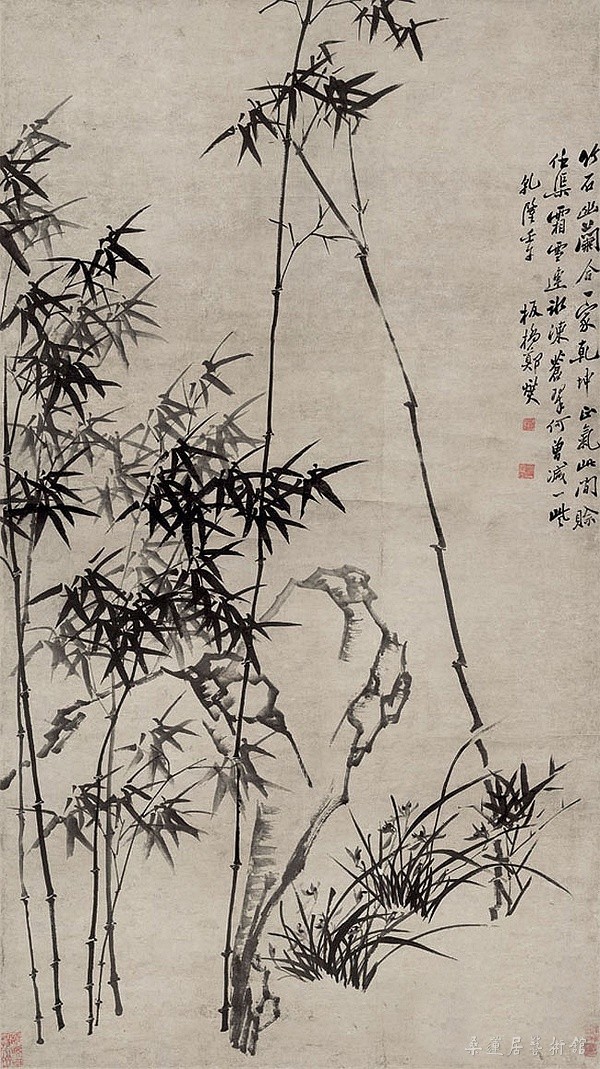 竹石幽蘭合一家乾坤正氣此間賒
任渠霜雪連冰凍蒼翠何曾減一些
乾隆壬午 板橋鄭燮
桑蓮居藝術館